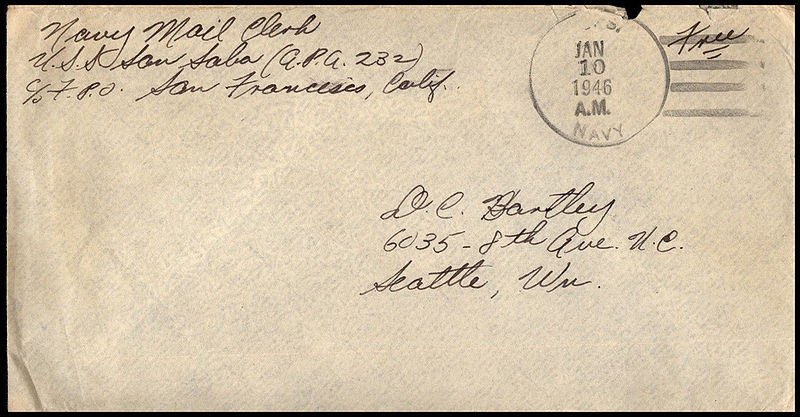 Navy Mail Clerk
U.S.S. San Saba (A.P.A. 232)
c/o F.P.O. San Francisco, Calif.
JAN
10
1946
A.M.
NAVY
Free
D. C. Bartley
6035 - 8th Ave. N.E.
Seattle, Wn.